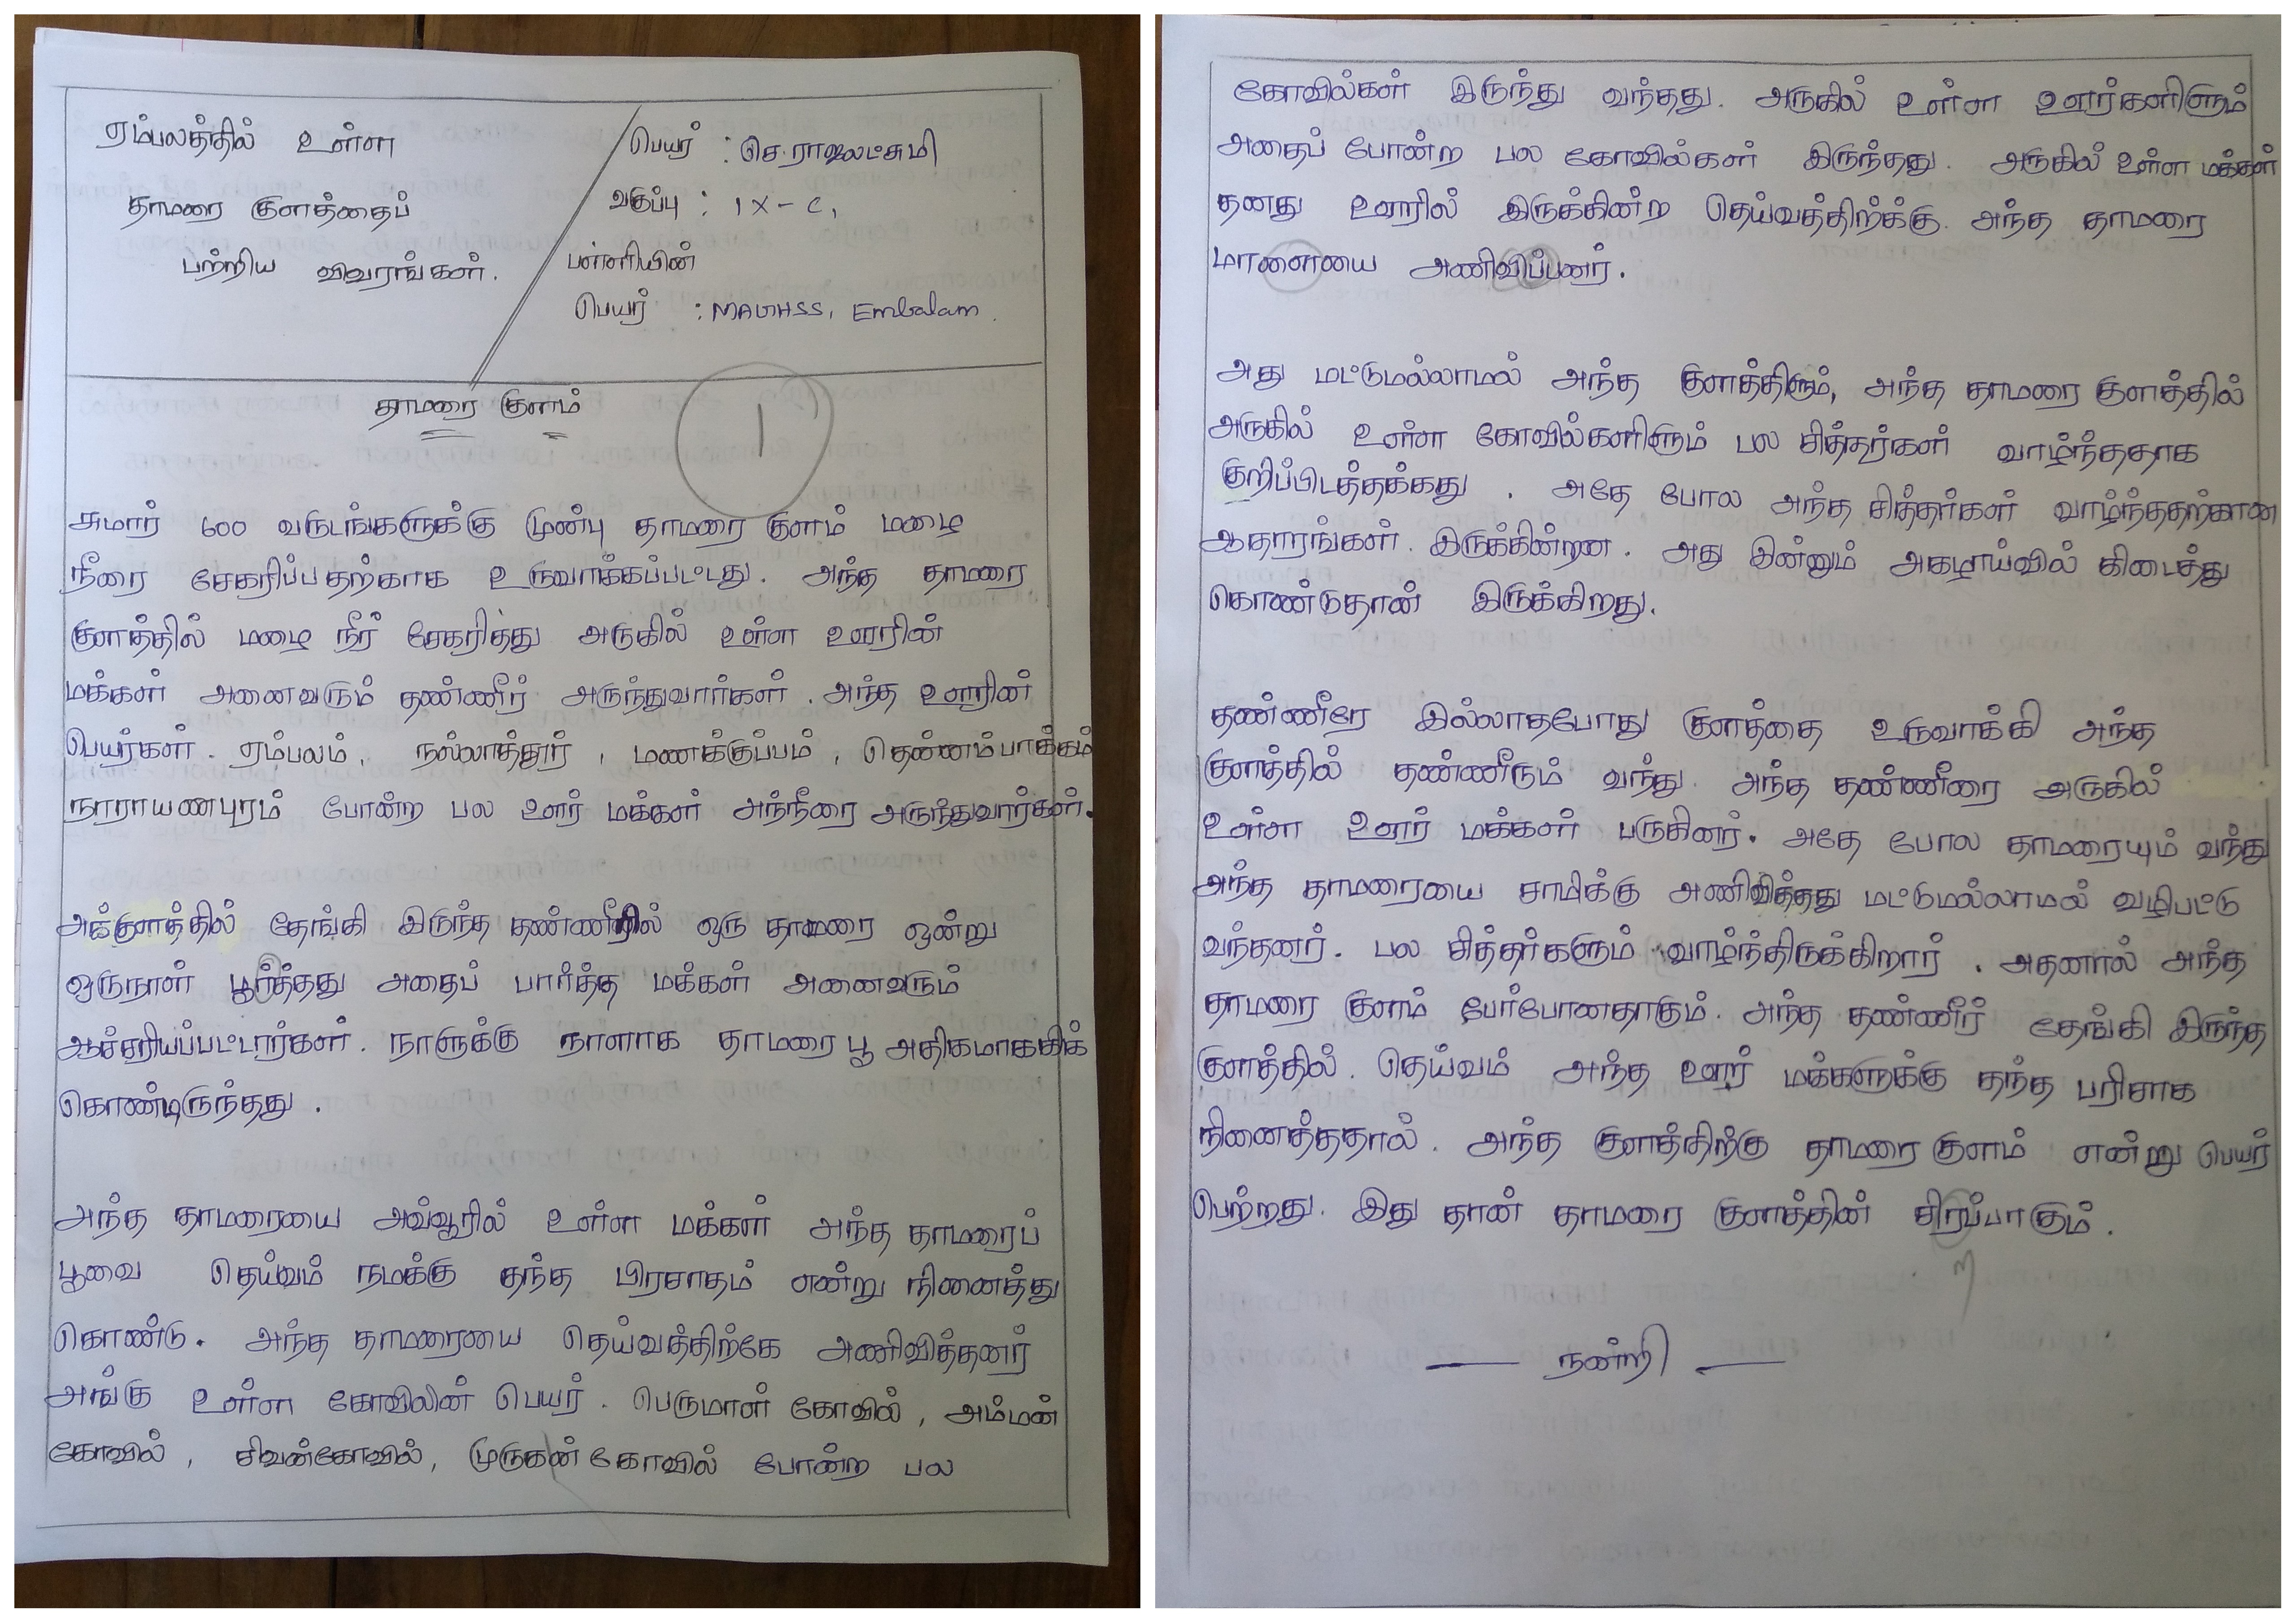 ஏம்பலத்தில் உள்ள
தாமரை குளத்தைப்
பற்றிய விவரங்கள்.
பெயர் : செ.ராஜலட்சுமி
வகுப்பு : IX - C,
பள்ளியின்
பெயர் : MAGHSS, Embalam.
தாமரை குளம்
1
சுமார் 600 வருடங்களுக்கு முன்பு தாமரை குளம் மழை
நீரை சேகரிப்பதற்காக உருவாக்கப்பட்டது. அந்த தாமரை
குளத்தில் மழை நீர் சேகரித்து அருகில் உள்ள ஊரின்
மக்கள் அனைவரும் தண்ணீர் அருந்துவார்கள். அந்த ஊரின்
பெயர்கள். ஏம்பலம், நல்லாத்தூர், மணக்குப்பம், தென்னம்பாக்கம்
நாராயணபுரம் போன்ற பல ஊர் மக்கள் அந்நீரை அருந்துவார்கள்.
அக்குளத்தில் தேங்கி இருந்த தண்ணீரில் ஒரு தாமரை ஒன்று
ஒருநாள் பூர்த்தது அதைப் பார்த்த மக்கள் அனைவரும்
ஆச்சரியப்பட்டார்கள். நாளுக்கு நாளாக தாமரை பூ அதிகமாககிக்
கொண்டிருந்தது.
அந்த தாமரையை அவ்வூரில் உள்ள மக்கள் அந்த தாமரைப்
பூவை தெய்வம் நமக்கு தந்த பிரசாதம் என்று நினைத்து
கொண்டு. அந்த தாமரையை தெய்வத்திற்கே அணிவித்தனர்
அங்கு உள்ள கோவிலின் பெயர். பெருமாள் கோவில், அம்மன்
கோவில், சிவன்கோவில், முருகன் கோவில் போன்ற பல
கோவில்கள் இருந்து வந்தது. அருகில் உள்ள ஊர்களிளும்
அதைப் போன்ற பல கோவில்கள் இருந்தது. அருகில் உள்ள மக்கள்
தனது ஊரில் இருக்கின்ற தெய்வத்திற்க்கு. அந்த தாமரை
மாளையை அணிவிப்பனர்.
அது மட்டுமல்லாமல் அந்த குளத்திளும், அந்த தாமரை குளத்தில்
அருகில் உள்ள கோவில்களிளும் பல சித்தர்கள் வாழ்ந்ததாக
குறிப்பிடத்தக்கது. அதே போல அந்த சித்தர்கள் வாழ்ந்ததற்கான
ஆதாரங்கள். இருக்கின்றன. அது இன்னும் அகழாய்வில் கிடைத்து
கொண்டுதான் இருக்கிறது.
தண்ணீரே இல்லாதபோது குளத்தை உருவாக்கி அந்த
குளத்தில் தண்ணீரும் வந்து. அந்த தண்ணீரை அருகில்
உள்ள ஊர் மக்கள் பருகினர். அதே போல தாமரையும் வந்து
அந்த தாமரையை சாமிக்கு அணிவித்தது மட்டுமல்லாமல் வழிபட்டு
வந்தனர். பல சித்தர்களும் வாழ்ந்திருக்கிறார். அதனால் அந்த
தாமரை குளம் பேர்போனதாகும். அந்த தண்ணீர் தேங்கி இருந்த
குளத்தில். தெய்வம் அந்த ஊர் மக்களுக்கு தந்த பரிசாக
நினைத்ததால். அந்த குளத்திற்கு தாமரை குளம் என்று பெயர்
பெற்றது. இது தான் தாமரை குளத்தின் சிரப்பாகும்.
ற
— நன்றி —